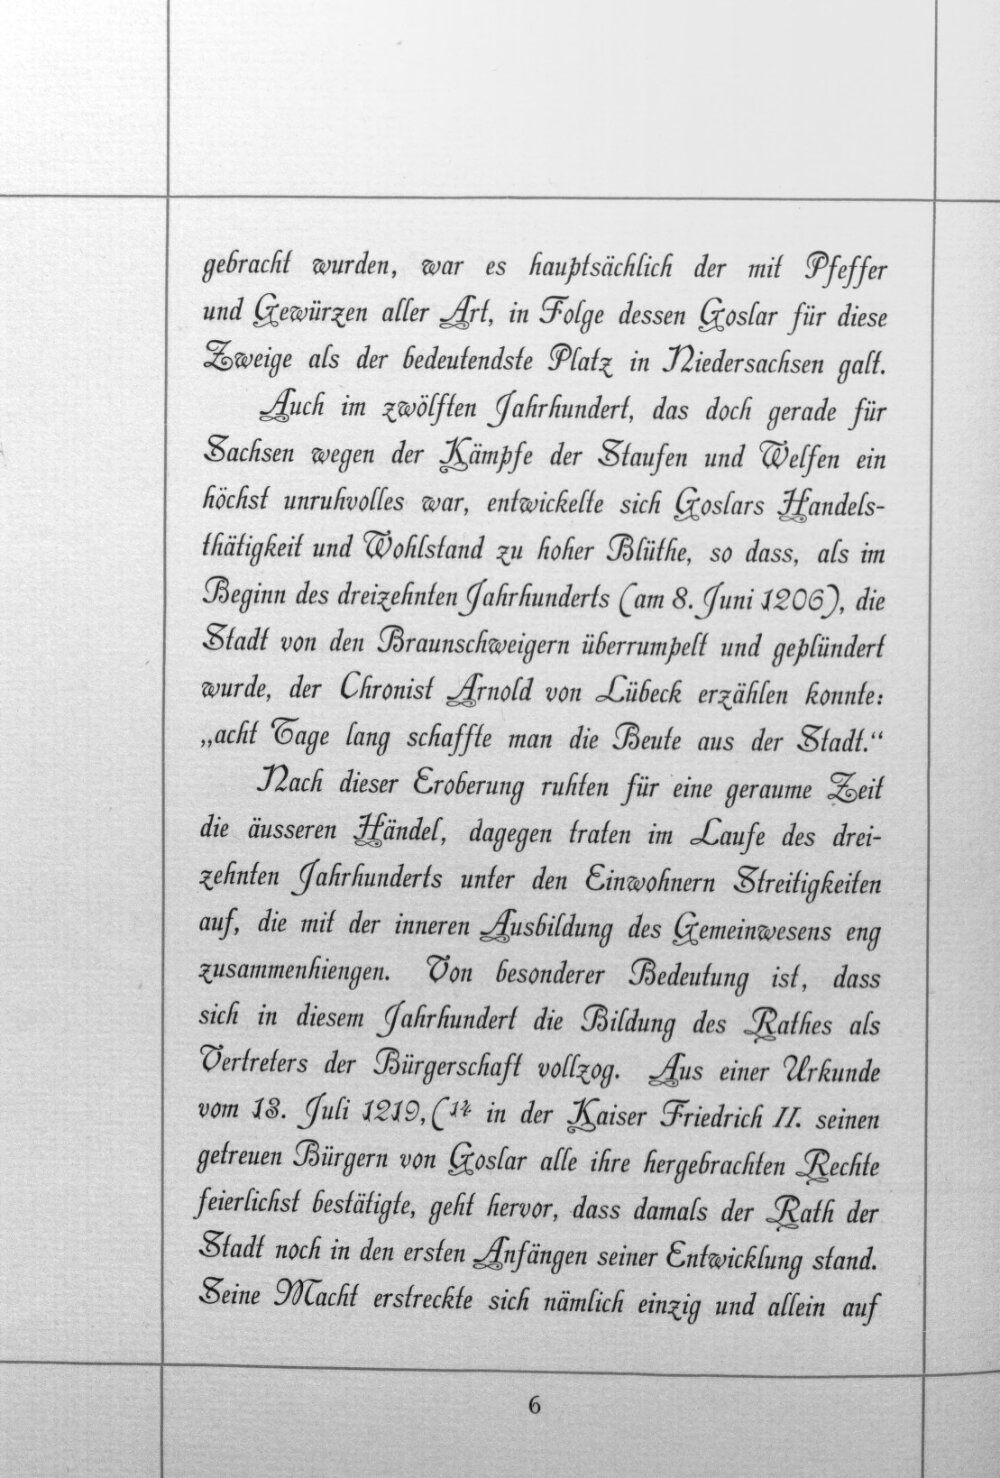 gebracht wurden, war es hauptsächlich der mit Pfeffer
und Gewürzen aller Art, in Folge dessen Goslar für diese
Zweige als der bedeutendste Platz in Niedersachsen galt.
Auch im zwölften Jahrhundert, das doch gerade für
Sachsen wegen der Kämpfe der Staufen und Welfen ein
höchst unruhvolles war, entwickelte sich Goslars Handels-
thätigkeit und Wohlstand zu hoher Blüthe, so dass, als im
Beginn des dreizehnten Jahrhunderts (am 8. Juni 1206), die
Stadt von den Braunschweigern überrumpelt und geplündert
wurde, der Chronist Arnold von Lübeck erzählen konnte:
„acht Tage lang schaffte man die Beute aus der Stadt.“
Nach dieser Eroberung ruhten für eine geraume Zeit
die äusseren Händel, dagegen traten im Laufe des drei-
zehnten Jahrhunderts unter den Einwohnern Streitigkeiten
auf, die mit der inneren Ausbildung des Gemeinwesens eng
zusammenhiengen. Von besonderer Bedeutung ist, dass
sich in diesem Jahrhundert die Bildung des Rathes als
Vertreters der Bürgerschaft vollzog. Aus einer Urkunde
vom 13. Juli 1219, (14 in der Kaiser Friedrich II. seinen
getreuen Bürgern von Goslar alle ihre hergebrachten Rechte
feierlichst bestätigte, geht hervor, dass damals der Rath der
Stadt noch in den ersten Anfängen seiner Entwicklung stand.
Seine Macht erstreckte sich nämlich einzig und allein auf
6